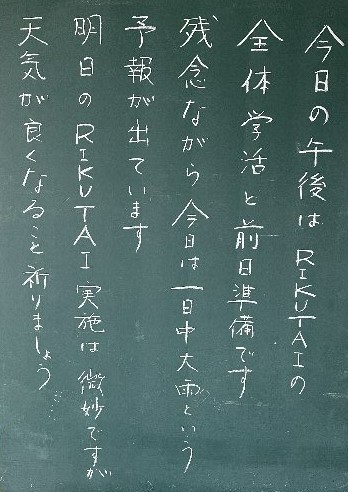 今日の午後はRIKUTAIの
全体学活と前日準備です
残念ながら今日は一日中大雨という
予報が出ています
明日のRIKUTAI実施は微妙ですが
天気が良くなること祈りましょう